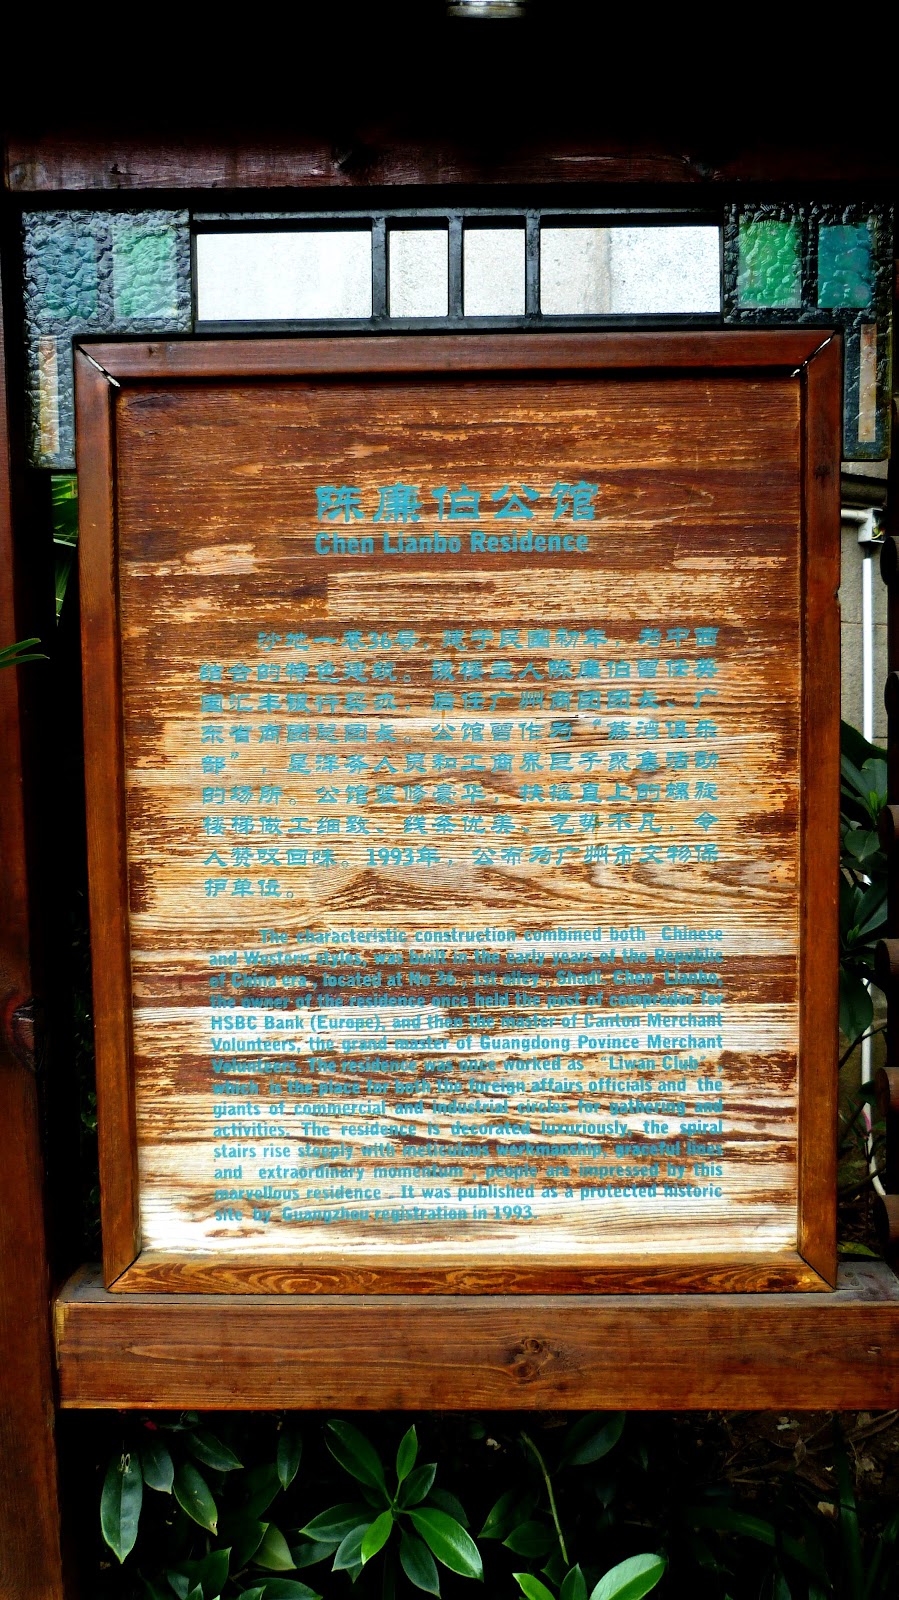 陈廉伯公馆
Chen Lianbo Residence
沙地一巷36号，建于民国初年，为中西
结合的特色建筑。该楼主人陈廉伯曾任英
国汇丰银行买办，后任广州商团团长、广
东省商团总团长。公馆曾作为“荔湾俱乐
部”，是洋务人员和工商界巨子聚集活动
的场所。公馆装修豪华，扶摇直上的螺旋
楼梯做工细致、线条优美、气势不凡，令
人赞叹回味。1993年，公布为广州市文物保
护单位。
The characteristic construction combined both Chinese
and Western styles, was built in the early years of the Republic
of China era , located at No 36 , 1st alley , Shadi. Chen Lianbo,
the owner of the residence once held the post of comprador for
HSBC Bank (Europe), and then the master of Canton Merchant
Volunteers, the grand master of Guangdong Povince Merchant
Volunteers. The residence was once worked as “Liwan Club” ,
which is the place for both the foreign affairs officials and the
giants of commercial and industrial circles for gathering and
activities. The residence is decorated luxuriously, the spiral
stairs rise steeply with meticulous workmanship, graceful lines
and extraordinary momentum , people are impressed by this
marvellous residence . It was published as a protected historic
site by Guangzhou registration in 1993.